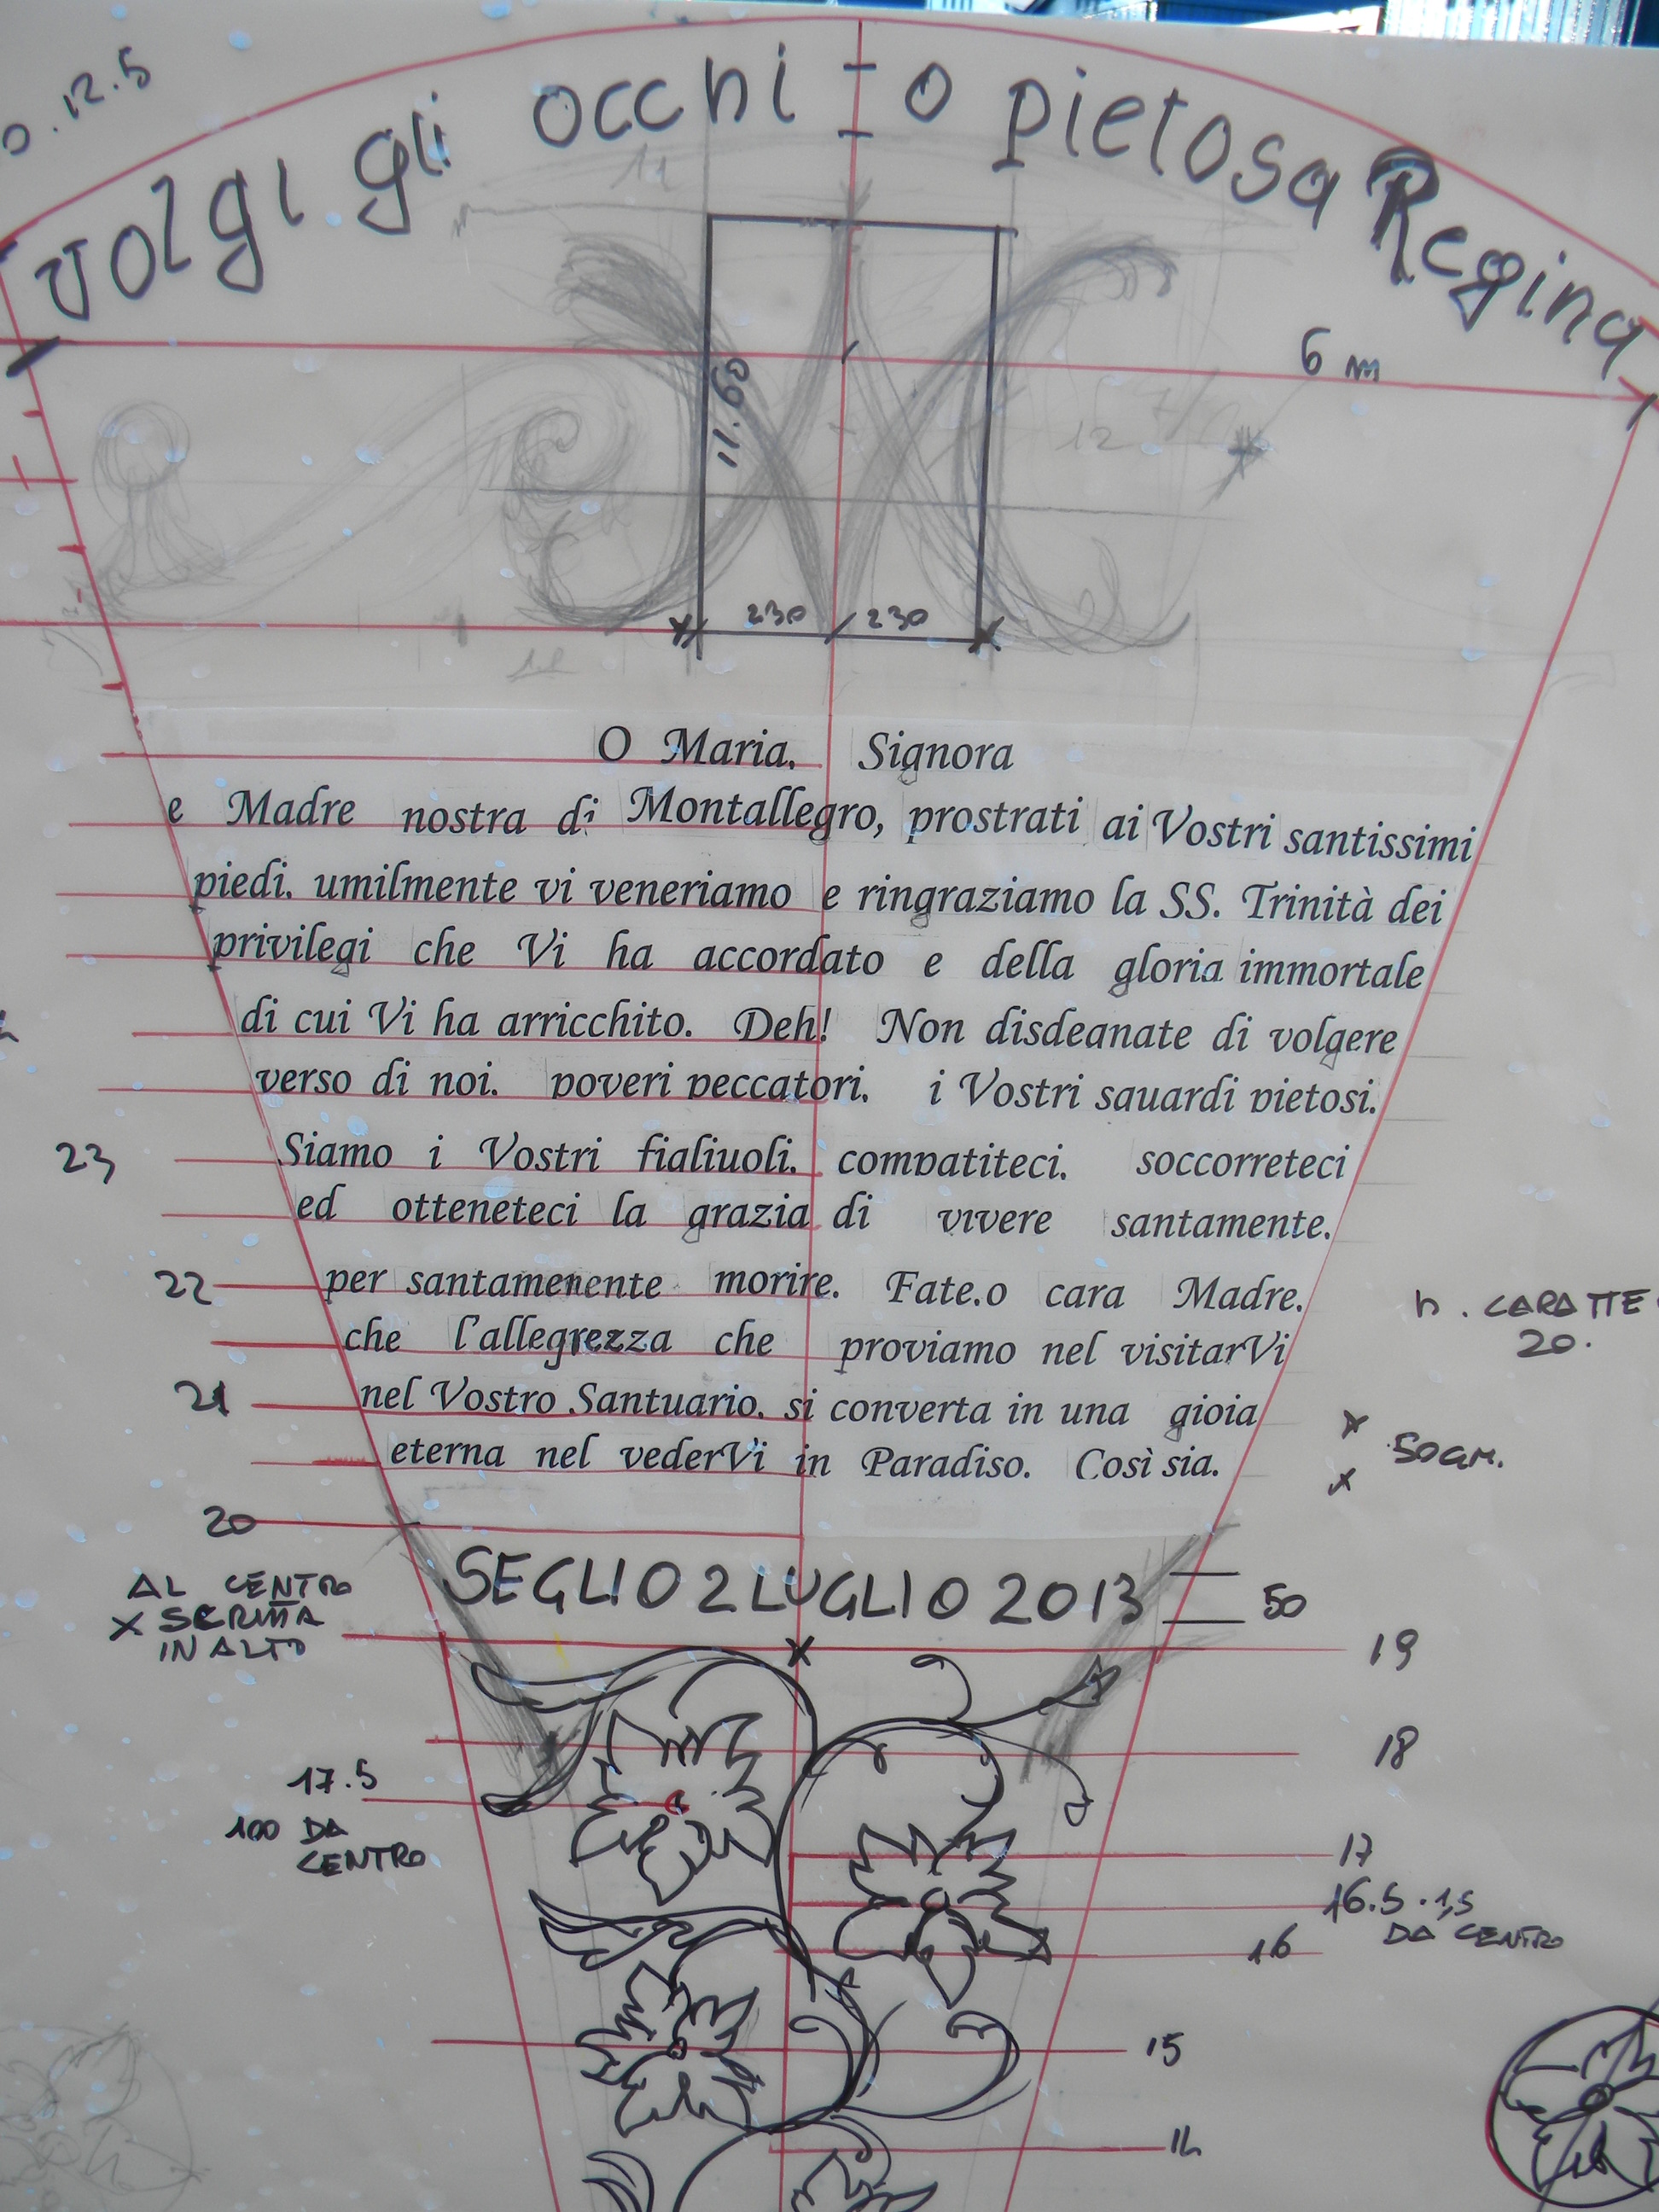 0.12.5
volgi gli occhi o pietosa Regina
11
11.60
6 m
12
230 230
O Maria. Signora
e Madre nostra di Montallegro, prostrati ai Vostri santissimi
piedi. umilmente vi veneriamo e ringraziamo la SS. Trinità dei
privilegi che Vi ha accordato e della gloria immortale
di cui Vi ha arricchito. Deh! Non disdeanate di volgere
verso di noi. poveri peccatori. i Vostri sauardi pietosi.
23
Siamo i Vostri fialiuoli. compatiteci. soccorreteci
ed otteneteci la grazia di vivere santamente.
22
per santamenente morire. Fate.o cara Madre.
h. CARATTE
20.
che l'allegrezza che proviamo nel visitarVi
21
nel Vostro Santuario. si converta in una gioia
50 GM.
eterna nel vederVi in Paradiso. Così sia.
20
SEGLIO 2 LUGLIO 2013
50
AL CENTRO
X SCRITTA
IN ALTO
19
18
17.5
100 DA
CENTRO
17
16.5 . 1,5
DA CENTRO
16
15
14